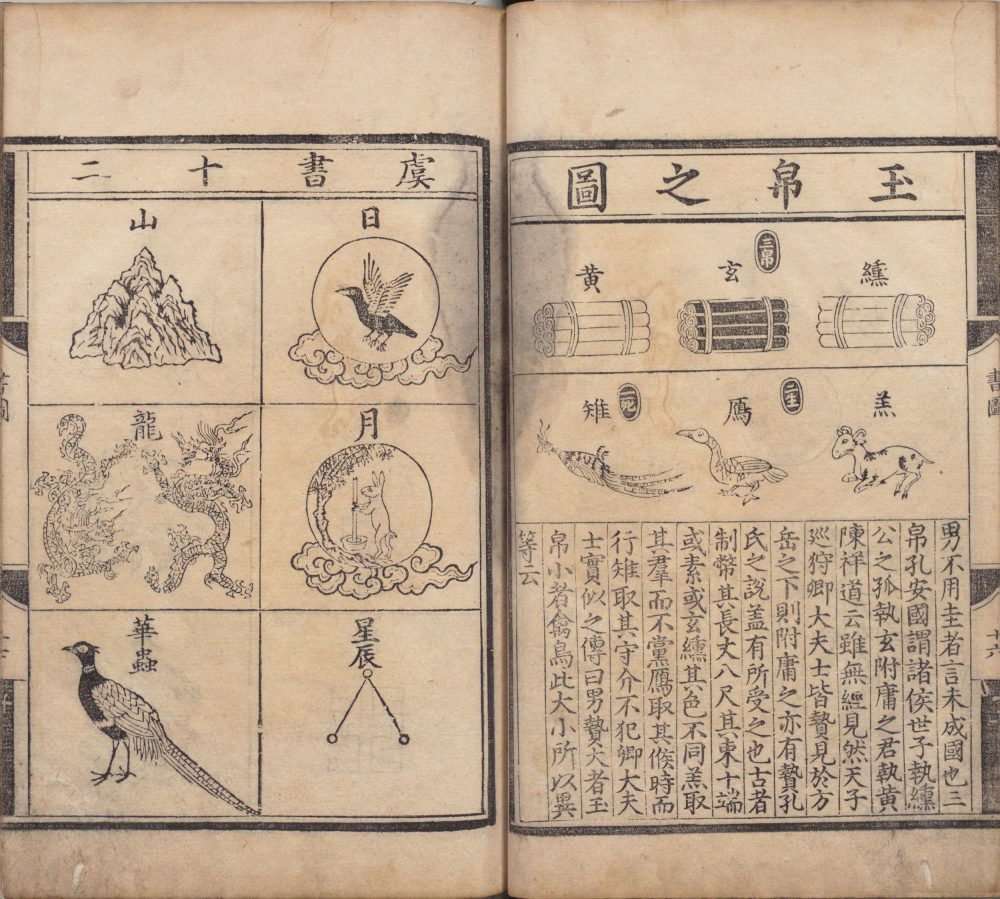 玉帛之圖
三帛
纁
玄
黄
二生
羔
鴈
一死
雉
男不用圭者言未成國也三
帛孔安國謂諸侯世子執纁
公之孤執玄附庸之君執黄
陳祥道云雖無經見然天子
巡狩卿大夫士皆贄見於方
岳之下則附庸之亦有贄孔
氏之説盖有所受之也古者
制幣其長丈八尺其束十端
或素或玄纁其色不同羔取
其羣而不黨鴈取其候時而
行雉取其守介不犯卿大夫
士實似之傳曰男贄大者玉
帛小者禽鳥此大小所以異
等云
書圖
虞書十二
日
山
月
龍
星辰
華蟲